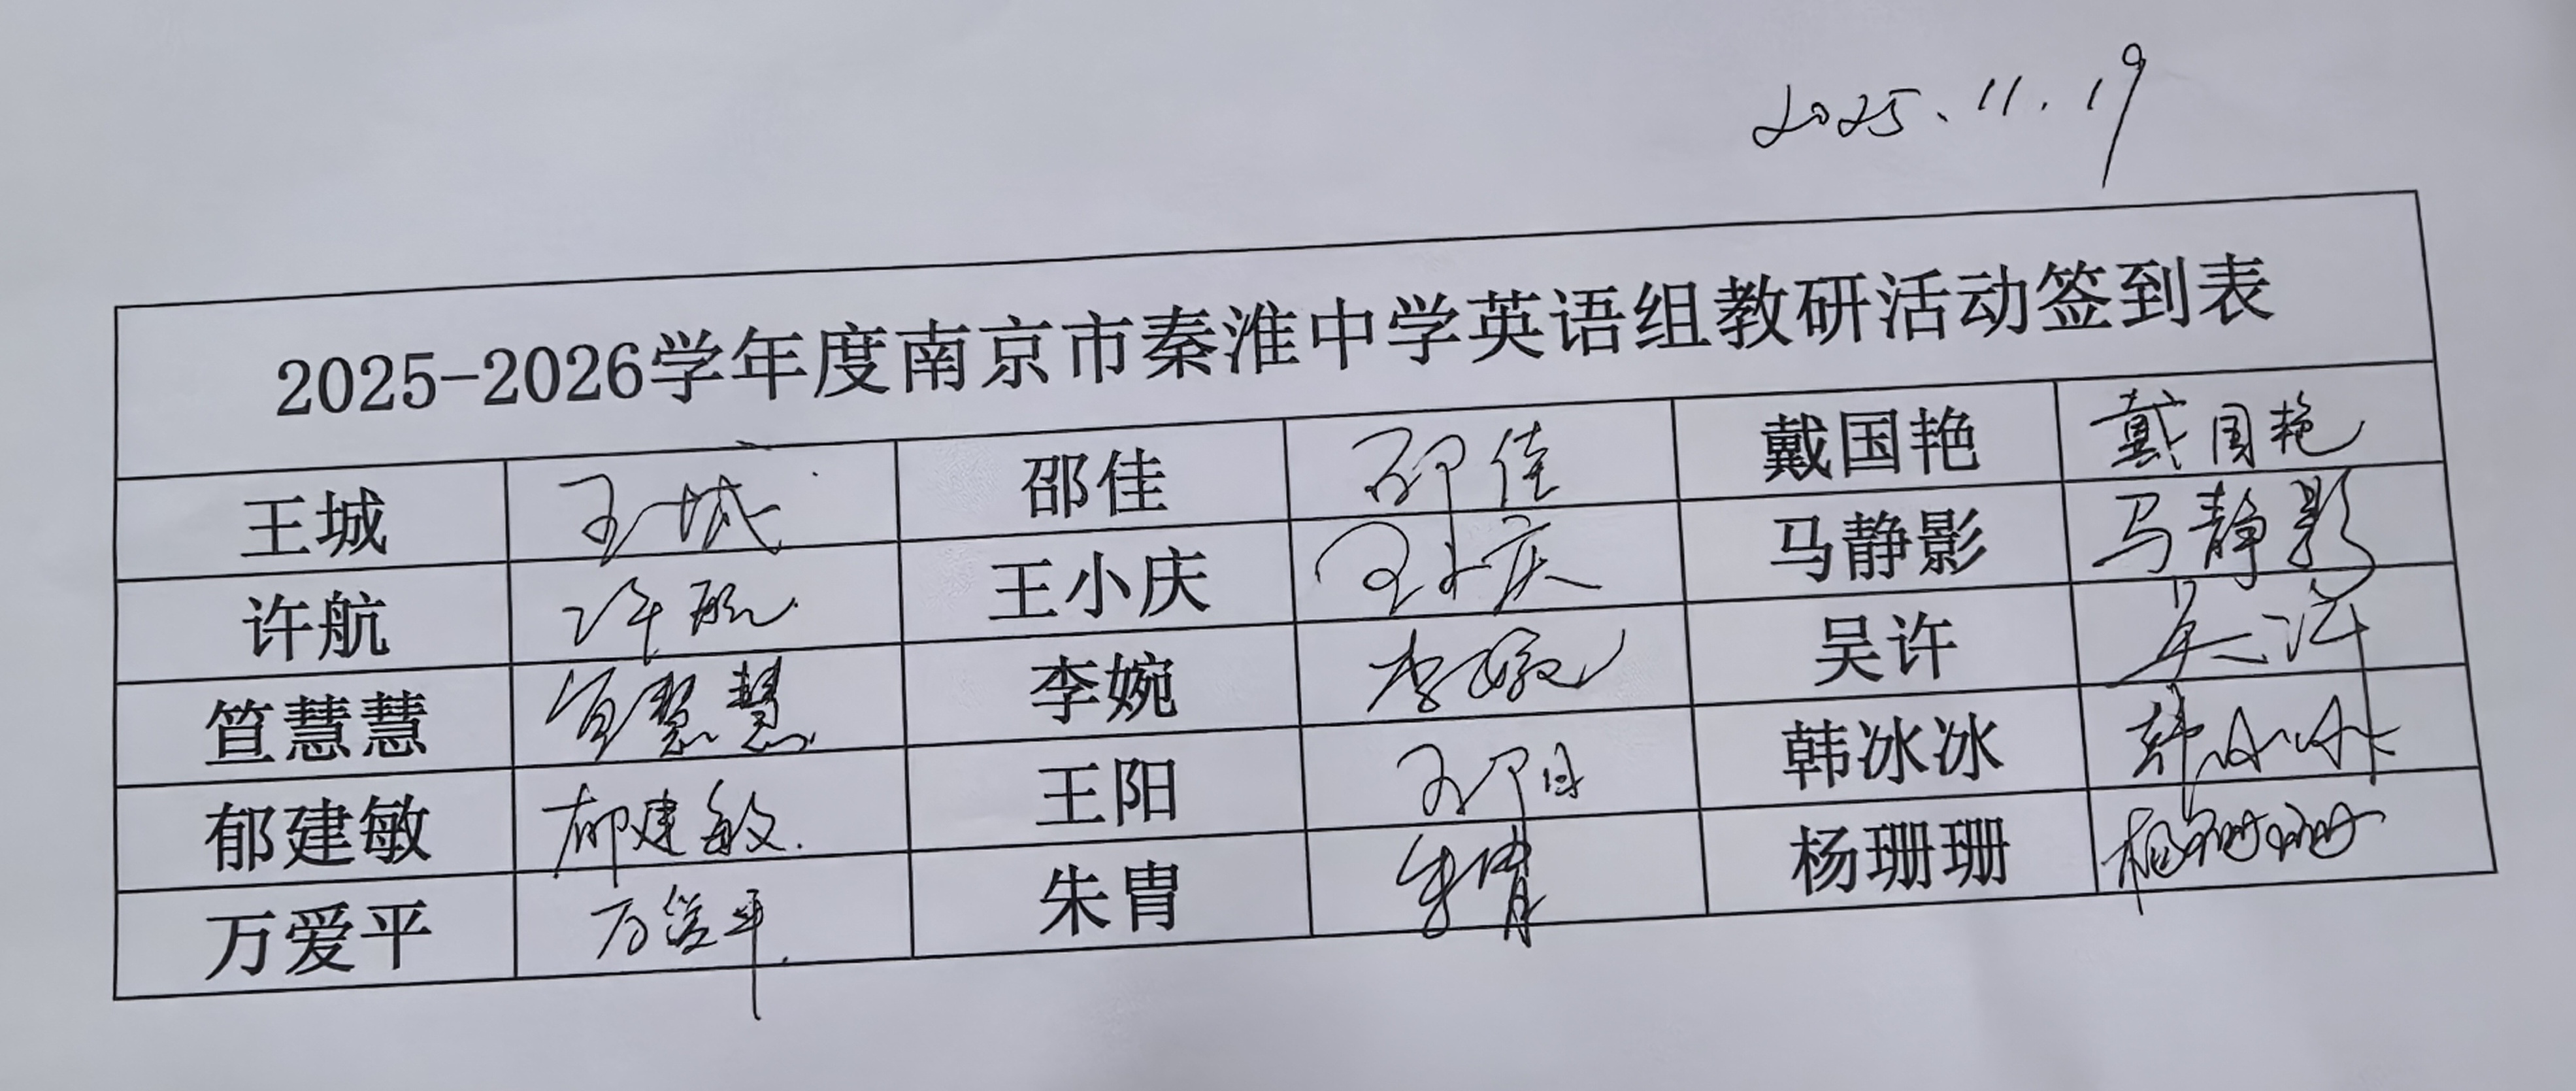 2025.11.19
2025-2026学年度南京市秦淮中学英语组教研活动签到表
王城 王城 邵佳 邵佳 戴国艳 戴国艳
许航 许航 王小庆 王小庆 马静影 马静影
笪慧慧 笪慧慧 李婉 李婉 吴许 吴许
郁建敏 郁建敏 王阳 王阳 韩冰冰 韩冰冰
万爱平 万爱平 朱胄 朱胄 杨珊珊 杨珊珊